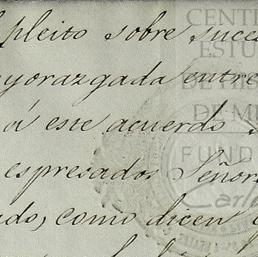 pleito sobre suce
yorazgada entre
á este acuerdo
espresados Señor
do, como dicen
CENT
ESTU
DE HIS
DE M
FUND
Carlo